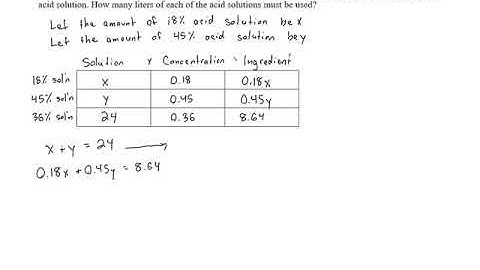 acid solution. How many liters of each of the acid solutions must be used?
Let the amount of 18% acid solution be x
Let the amount of 45% acid solution be y
Solution x Concentration = Ingredient
18% sol'n x 0.18 0.18x
45% sol'n y 0.45 0.45y
36% sol'n 24 0.36 8.64
x + y = 24
0.18x + 0.45y = 8.64